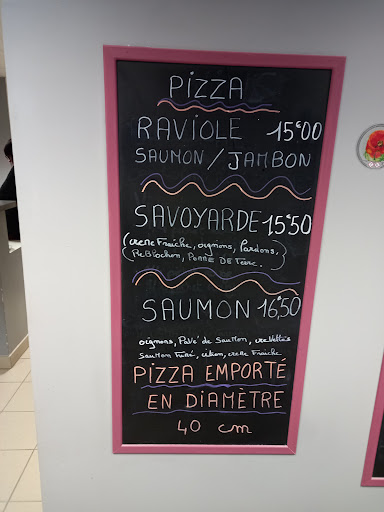 PIZZA
RAVIOLE 15€00
SAUMON / JAMBON
SAVOYARDE 15€50
(creme Fraîche, oignons, Lardons,
Reblochon, Pomme De Terre.)
SAUMON 16€50
oignons, Pavé de Saumon, crevettes
Saumon Fumé, citron, creme Fraiche
PIZZA EMPORTE
EN DIAMÈTRE
40 cm